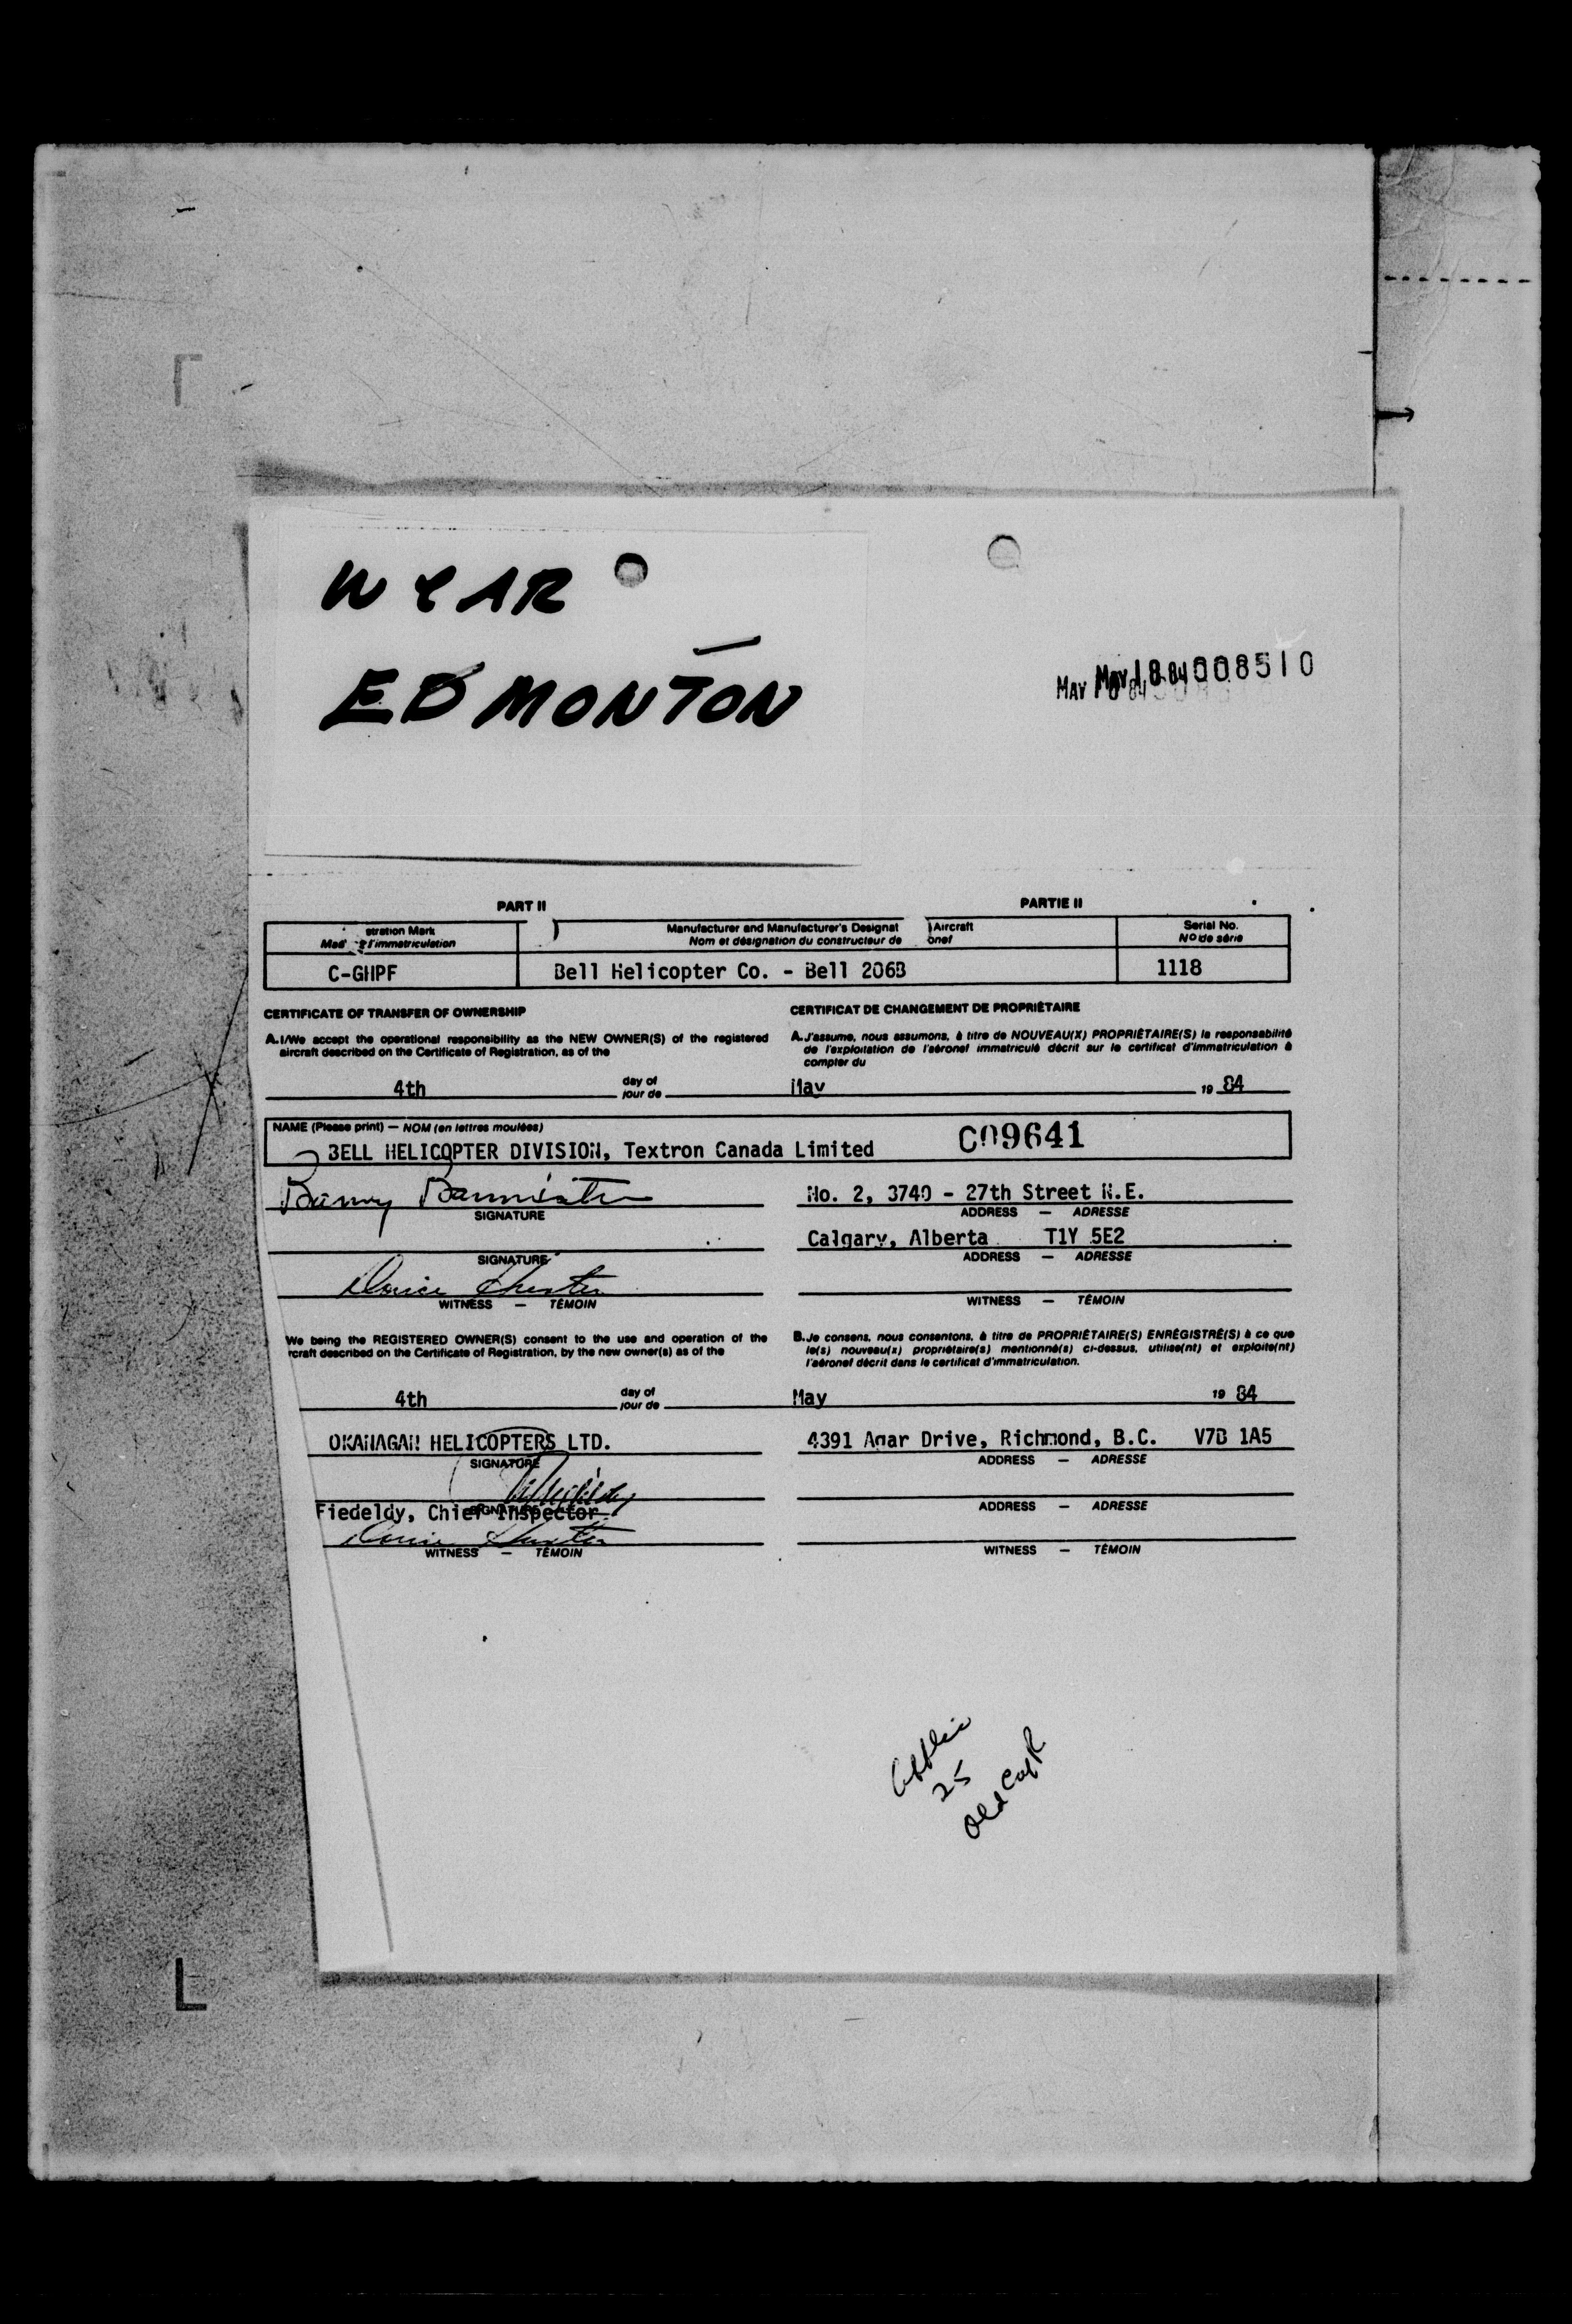 W & AR
EDMONTON
MAY 18 84 008510
PART II
PARTIE II
stration Mark
l'immatriculation
Manufacturer and Manufacturer's Designat
Aircraft
Nom et désignation du constructeur de
onef
Serial No.
Nº de série
C-GHPF
Bell Helicopter Co. - Bell 206B
1118
CERTIFICATE OF TRANSFER OF OWNERSHIP
A. I/We accept the operational responsibility as the NEW OWNER(S) of the registered
aircraft described on the Certificate of Registration, as of the
CERTIFICAT DE CHANGEMENT DE PROPRIÉTAIRE
A. J'assume, nous assumons, à titre de NOUVEAU(X) PROPRIÉTAIRE(S) la responsabilité
de l'exploitation de l'aéronef immatriculé décrit sur le certificat d'immatriculation à
compter du
4th day of May 19 84
jour de
NAME (Please print) — NOM (en lettres moulées)
BELL HELICOPTER DIVISION, Textron Canada Limited C09641
Barry Bannister
SIGNATURE
No. 2, 3740 - 27th Street N.E.
ADDRESS — ADRESSE
Calgary, Alberta T1Y 5E2
SIGNATURE
ADDRESS — ADRESSE
WITNESS — TÉMOIN
WITNESS — TÉMOIN
We being the REGISTERED OWNER(S) consent to the use and operation of the
rcraft described on the Certificate of Registration, by the new owner(s) as of the
B. Je consens, nous consentons, à titre de PROPRIÉTAIRE(S) ENRÉGISTRÉ(S) à ce que
le(s) nouveau(x) propriétaire(s) mentionné(s) ci-dessus, utilise(nt) et exploite(nt)
l'aéronef décrit dans le certificat d'immatriculation.
4th day of May 19 84
jour de
OKANAGAN HELICOPTERS LTD.
SIGNATURE
4391 Agar Drive, Richmond, B.C. V7B 1A5
ADDRESS — ADRESSE
SIGNATURE
Fiedeldy, Chief Inspector
ADDRESS — ADRESSE
WITNESS — TÉMOIN
WITNESS — TÉMOIN
25
old C of R